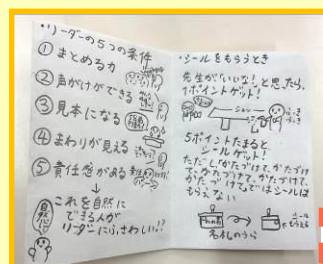 ・リーダーの5つの条件
① まとめる力
② 声がけができる
③ 見本になる
④ まわりが見える
⑤ 責任感がある
↓
これを自然に
できる人が
リーダーにふさわしい!?
自然に
・シールをもらうとき
先生が「いいな!」と思ったら、
1ポイントゲット!
5ポイントたまると、
シールゲット!
ただし「かたづけて、かたづけ
て、かたづけて、かたづけて、
かたづけて。」ではシールは
もらえない
名札のうら